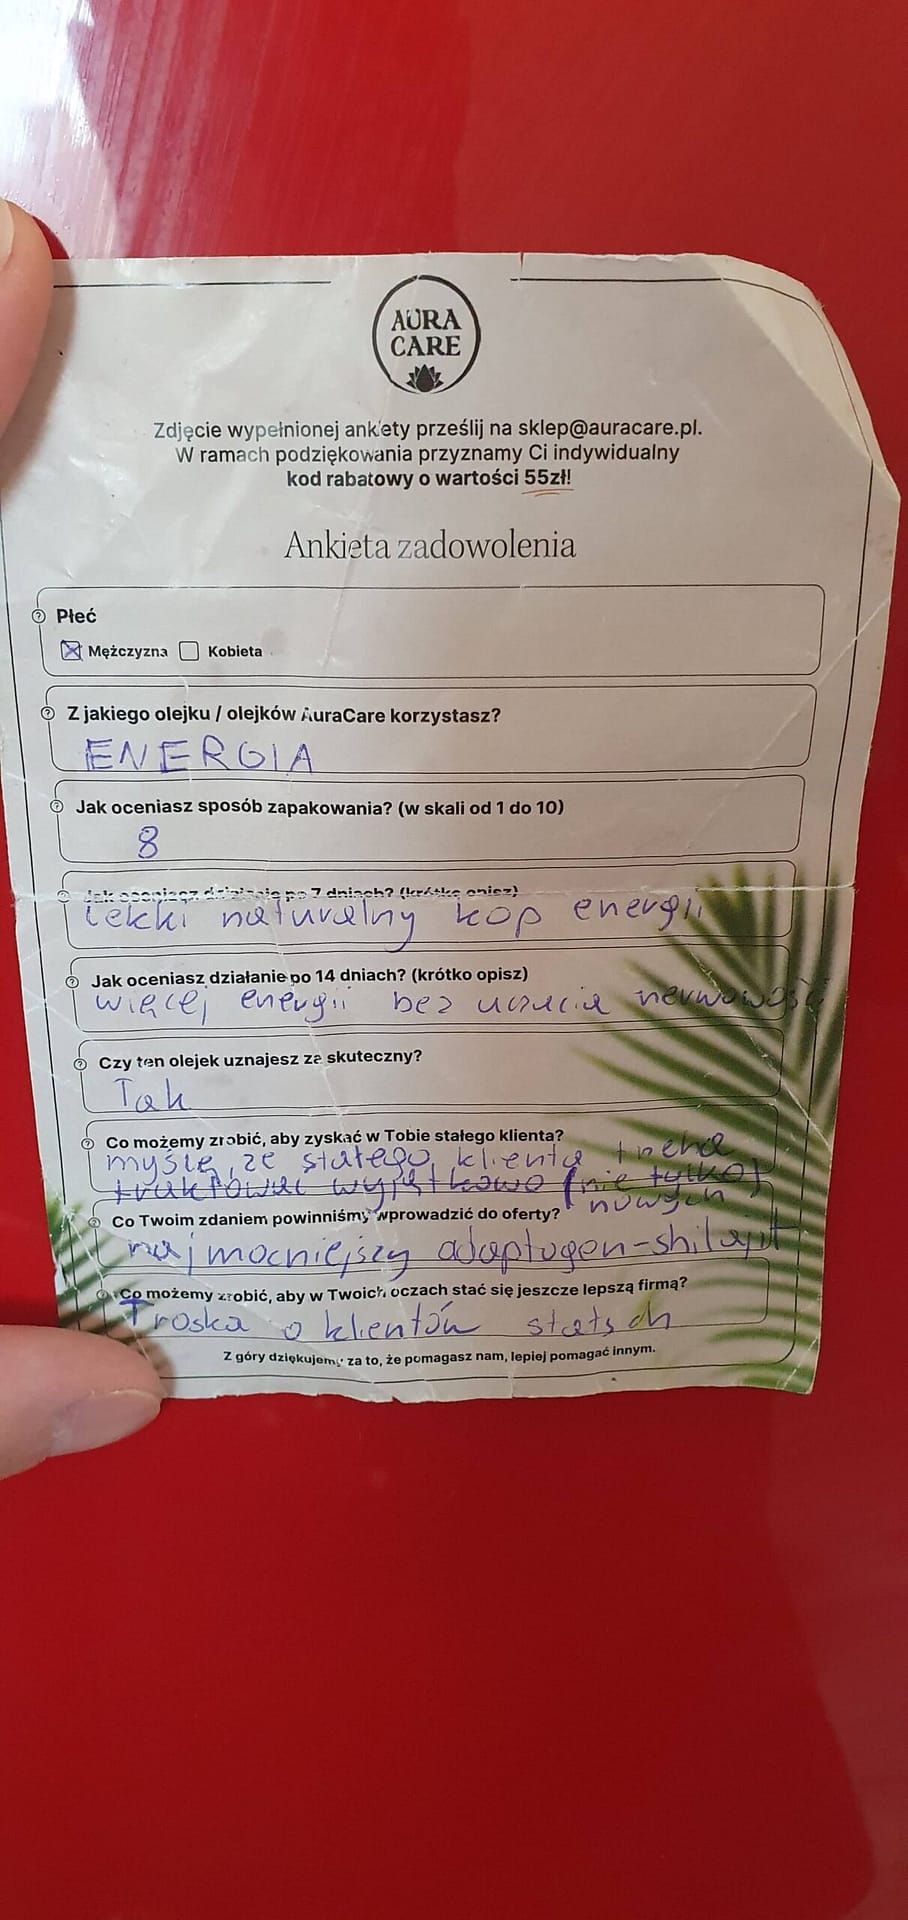 AURA
CARE
Zdjęcie wypełnionej ankiety prześlij na sklep@auracare.pl.
W ramach podziękowania przyznamy Ci indywidualny
kod rabatowy o wartości 55zł!
Ankieta zadowolenia
Płeć
Mężczyzna Kobieta
Z jakiego olejku / olejków AuraCare korzystasz?
ENERGIA
Jak oceniasz sposób zapakowania? (w skali od 1 do 10)
8
Jak oceniasz działanie po 7 dniach? (krótko opisz)
lekki naturalny kop energii
Jak oceniasz działanie po 14 dniach? (krótko opisz)
więcej energii bez uczucia nerwowość
Czy ten olejek uznajesz za skuteczny?
Tak
Co możemy zrobić, aby zyskać w Tobie stałego klienta?
myślę, że stałego klienta trzeba
traktować wyjątkowo (nie tylko)
nowych
Co Twoim zdaniem powinniśmy wprowadzić do oferty?
najmocniejszy adaptogen-shilajit
Co możemy zrobić, aby w Twoich oczach stać się jeszcze lepszą firmą?
Troska o klientów
Z góry dziękujemy za to, że pomagasz nam, lepiej pomagać innym.